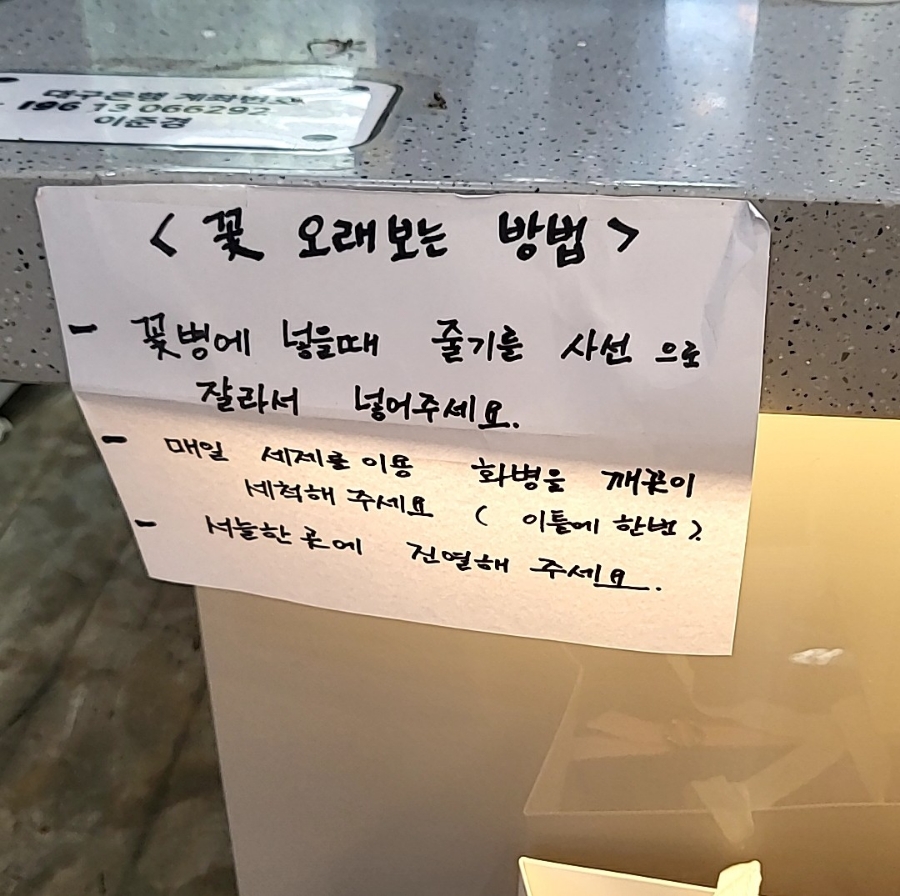 대구은행 계좌번호
196 13 066292
이준경
< 꽃 오래보는 방법 >
- 꽃병에 넣을때 줄기를 사선 으로
잘라서 넣어주세요.
- 매일 세제를 이용 화병을 깨끗이
세척해 주세요 ( 이틀에 한번 )
- 서늘한 곳에 진열해 주세요.